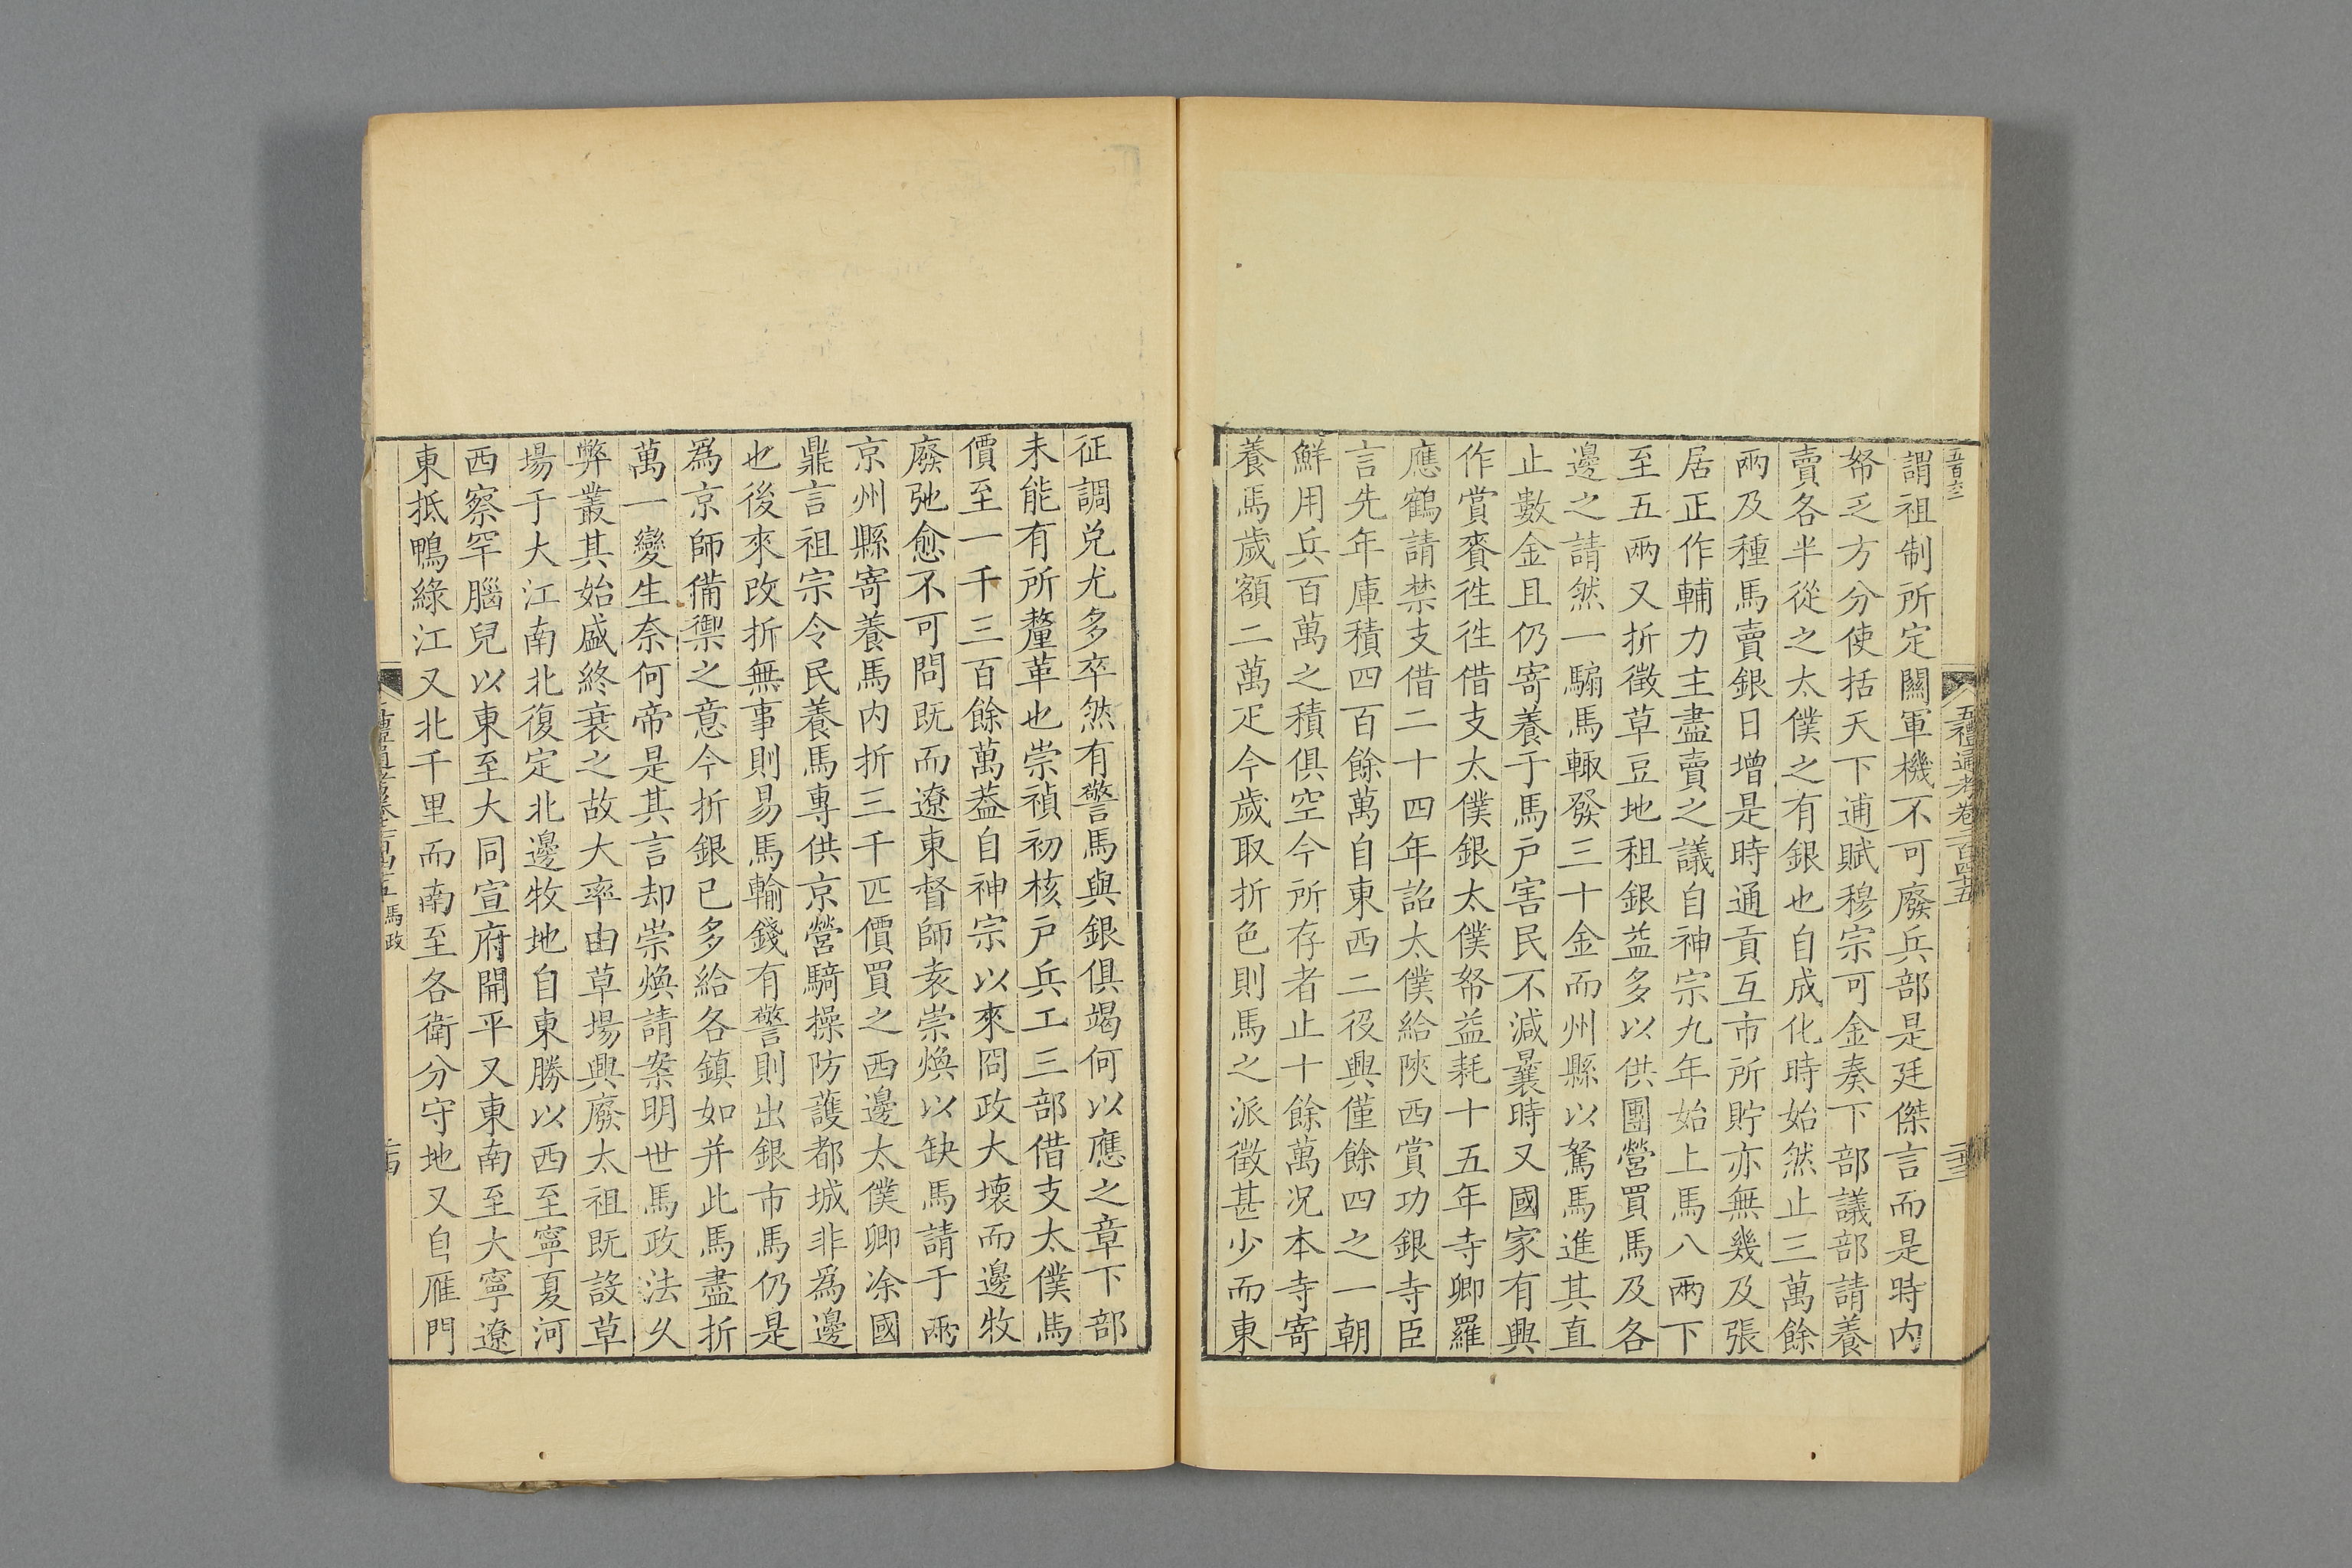 五百六二
五禮通考卷二百四十五
謂祖制所定關軍機不可廢兵部是廷傑言而是時内
帑乏方分使括天下逋賦穆宗可金奏下部議部請養
賣各半從之太僕之有銀也自成化時始然止三萬餘
兩及種馬賣銀日增是時通貢互市所貯亦無幾及張
居正作輔力主盡賣之議自神宗九年始上馬八兩下
至五兩又折徵草豆地租銀益多以供團營買馬及各
邊之請然一騸馬輒發三十金而州縣以駑馬進其直
止數金且仍寄養于馬戸害民不減曩時又國家有興
作賞賚徃徃借支太僕銀太僕帑益耗十五年寺卿羅
應鶴請禁支借二十四年詔太僕給陝西賞功銀寺臣
言先年庫積四百餘萬自東西二役興僅餘四之一朝
鮮用兵百萬之積俱空今所存者止十餘萬况本寺寄
養馬歲額二萬疋今歲取折色則馬之派徵甚少而東
征調兌尤多卒然有警馬與銀俱竭何以應之章下部
未能有所釐革也崇禎初核戸兵工三部借支太僕馬
價至一千三百餘萬葢自神宗以來冏政大壞而邊牧
廢弛愈不可問既而遼東督師袁崇煥以缺馬請于兩
京州縣寄養馬内折三千匹價買之西邊太僕卿凃國
鼎言祖宗令民養馬專供京營騎操防護都城非爲邊
也後來改折無事則易馬輸錢有警則出銀市馬仍是
爲京師備禦之意今折銀已多給各鎮如并此馬盡折
萬一變生奈何帝是其言却崇煥請案明世馬政法久
弊叢其始盛終衰之故大率由草場興廢太祖既設草
場于大江南北復定北邊牧地自東勝以西至寧夏河
西察罕腦兒以東至大同宣府開平又東南至大寧遼
東抵鴨綠江又北千里而南至各衛分守地又自雁門
馬政